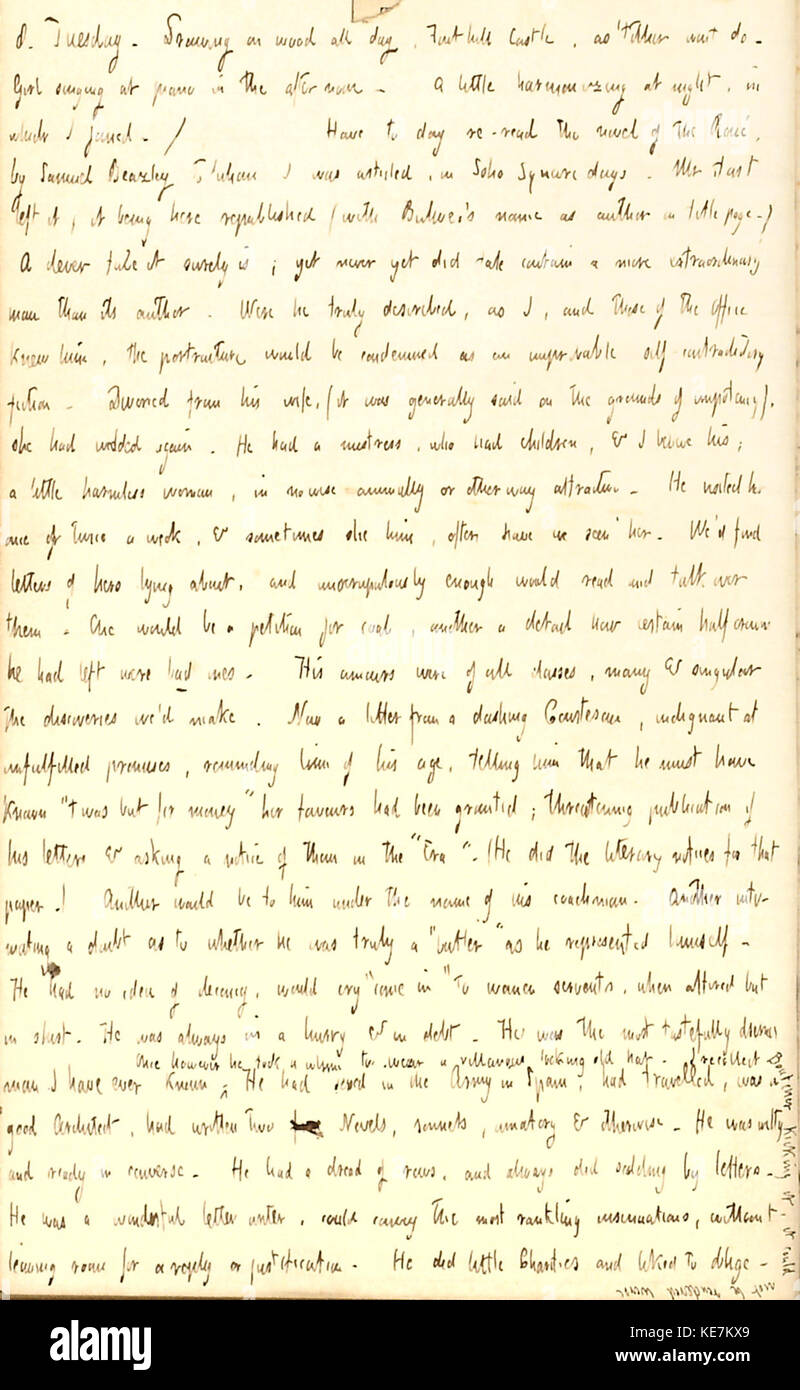 8. Tuesday. Drawing on wood all day, Fonthill Castle, as 'tother wont do.
Girl singing at piano in the afternoon. A little harmonizing at night, in
which I joined. / Have to day re-read the novel of The Roué,
by Samuel Beazley to whom I was articled, in Soho Square days. Mr Hart
left it, it being here republished (with Bulwer's name as author on title page.)
A clever tale it surely is; yet never yet did tale contain a more extraordinary
man than its author. Were he truly described, as I, and those of the office
knew him, the portraiture would be condemned as an improbable self-contradictory
fiction. Divorced from his wife, (it was generally said on the grounds of impotency),
she had wedded again. He had a mistress, who had children, & I believe his;
a little harmless woman, in no wise animally or other way attractive. He visited her
once or twice a week, & sometimes she him, often have we seen her. We'd find
letters of hers lying about, and unscrupulously enough would read and talk over
them. One would be a petition for coal, another a detail how certain half crowns
he had left were bad ones. His amours were of all classes, many & singular
the discoveries we'd make. Now a letter from a dashing Courtesan, indignant at
unfulfilled promises, reminding him of his age, telling him that he must have
known "'twas but for money" her favours had been granted; threatening publication of
his letters & asking a notice of them in the "Era". (He did the literary notices for that
paper.) Another would be to him under the name of his coachman. Another inti-
mating a doubt as to whether he was truly a "butler" as he represented himself.
He had no idea of decency, would cry "come in" to women servants, when attired but
in shirt. He was always in a hurry & in debt. He was the most tastefully dressed
Once however he took a whim to wear a villainous looking old hat. I recollect
man I have ever known. He had served in the Army in Spain, had travelled, was a
good Architect, had written two Novels, sonnets, amatory & otherwise. He was witty
and ready in converse. He had a dread of rows, and always did scolding by letters.
He was a wonderful letter writer, could convey the most rankling insinuations, without
leaving room for a reply or justification. He did little Charities and liked to oblige.
kicking it